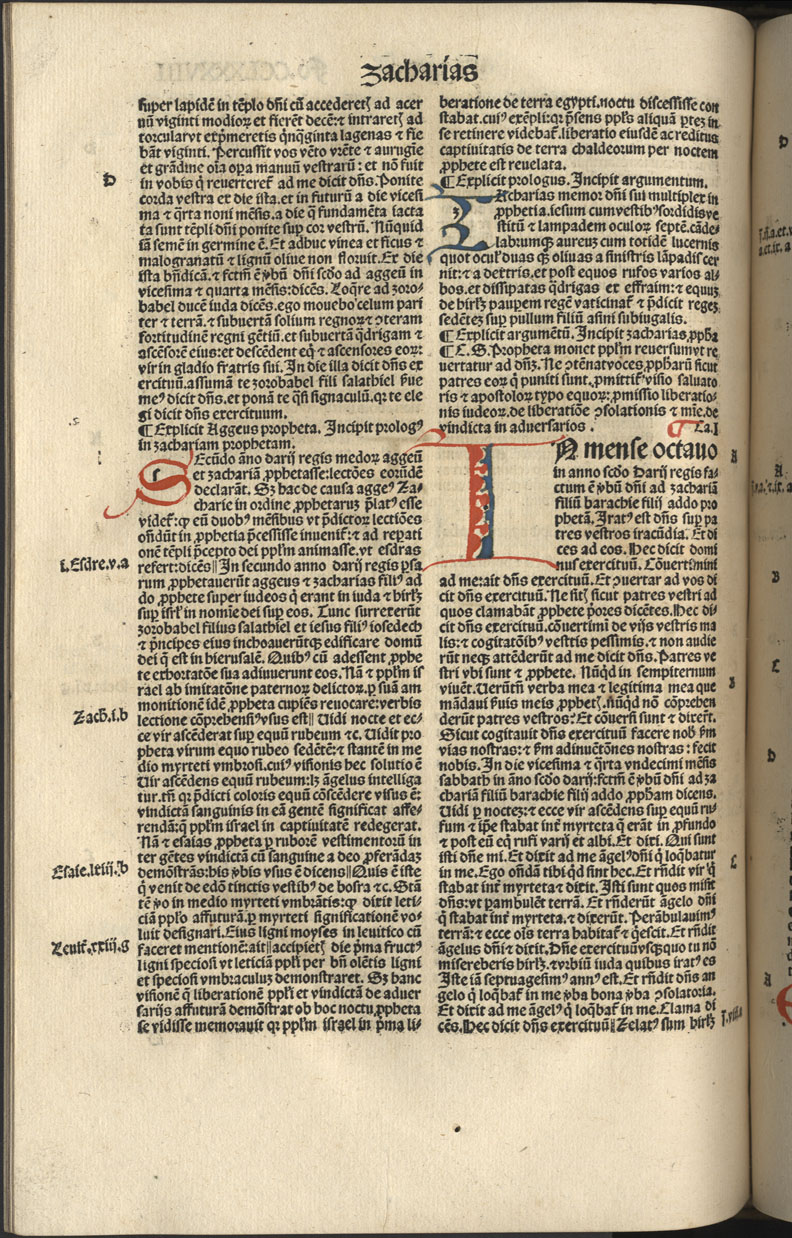 Zacharias
super lapidē in tēplo dñi cū accederetꝭ ad acer
nū viginti modioꝝ et fierēt decē: ⁊ intraretꝭ ad
torcular vt exp̄meretis qͥnqͣginta lagenas ⁊ fie
bāt viginti. Percussit vos vēto vrēte ⁊ aurugīe
et grādine oīa oꝑa manuū vestraꝝ: et nō fuit
D
in vobis qͥ reverteret᷑ ad me dicit dñs. Ponite
corda vestra ex die ista. et in futurū a die vicesi
ma ⁊ qͣrta noni mēsis. a die qͣ fundamēta iacta
ta sunt tēpli dñi ponite suꝑ cor vestrū. Nūquid
iā semē in germine ē. Et adhuc vinea et ficus ⁊
malogranatū ⁊ lignū olive non floruit. Ex die
ista bñdicā. ⁊ fctm̄ ē ꝟbū dñi scđo ad aggeū in
vicesima ⁊ quarta mēsis: dicēs. Loqͥre ad zoro-
babel ducē iuda dicēs. ego movebo celum pari
ter ⁊ terrā. ⁊ subvertā solium regnoꝝ ⁊ ꝯteram
fortitudinē regni gētiū. et subvertā qͣdrigam ⁊
ascēsorē eius: et descēdent eqͥ ⁊ ascensores eoꝝ:
vir in gladio fratris sui. In die illa dicit dñs ex
ercituū. assumā te zorobabel fili salathiel ẜue
meꝰ dicit dñs. et ponā te qͣsi signaculū. qꝛ te ele
gi dicit dñs exercituum.
¶ Explicit Aggeus propheta. Incipit prologꝰ
in zachariam prophetam.
SEcūdo āno darij regis medoꝝ aggeū
et zachariā ꝓphetasse: lectōes eorūdē
declarāt. Sꝫ hac de causa aggeꝰ Za-
charie in ordine ꝓphetaꝝ p̄latꝰ esse
videt᷑: qꝫ eū duobꝰ mēsibus vt p̄dictoꝝ lectiōes
ondūt in ꝓphetia p̄cessisse invenit᷑: ⁊ ad reꝑati
onē tēpli p̄cepto dei pplm̄ animasse. vt esdras
i. Esdre. v. a
refert: dicēs‖ In secundo anno darij regis ꝑsa
rum ꝓphetaverūt aggeus ⁊ zacharias filiꝰ ad
do ꝓphete super iudeos qͥ erant in iuda ⁊ hirlꝫ
suꝑ isrl̄ in nomīe dei suꝑ eos. Tunc surrexerūt
zorobabel filius salathiel et iesus filiꝰ iosedech
⁊ p̄ncipes eius inchoaverūtqꝫ edificare domū
dei qͥ est in hierusalē. Quibꝰ cū adessent ꝓphe
te exhortatōe sua adiuverunt eos. Nā ⁊ pplm̄ is
rael ab imitatōne paternoꝝ delictoꝝ. ꝑ suā am
monitionē idē ꝓpheta cupiēs revocare: verbis
Zach. i. b
lectione cōp̄rehensiꝰ vsus est‖ Vidi nocte et ec-
ce vir ascēderat suꝑ equū rubeum ⁊c. Vidit pro
pheta virum equo rubeo sedētē: ⁊ stantē in me
dio myrteti vmbrosi. cuiꝰ visionis hec solutio ē
Vir ascēdens equū rubeum: lꝫ āgelus intelliga
tur. tñ qꝛ p̄dicti coloris equū cōscēdere visus ē:
vindictā sanguinis in eā gentē significat affe-
rendā: qͥ pplm̄ israel in captivitatē redegerat.
Nā ⁊ esaias ꝓpheta ꝑ ruborē vestimentoꝝ in
ter gētes vindictā cū sanguine a deo ꝓferādaꝫ
Esaie. lxiij. b
demōstrās: his ꝟbis vsus ē dicens‖ Quis ē iste
qͥ venit de edō tinctis vestibꝰ de bosra ⁊c. Stā
tē ꝟo in medio myrteti vmbrātis: qꝫ dixit leti-
ciā pplo affuturā. ꝑ myrteti significationē vo-
luit designari. Eius ligni moyses in levitico cū
Levit̄. xxiij. g
faceret mentionē: ait‖ accipietꝭ die p̄ma fructꝰ
ligni speciosi vt leticiā ppli per bñ olētis ligni
et speciosi vmbraculuꝫ demonstraret. Sꝫ hanc
visionē qͥ liberationē ppli et vindictā de adver
sarijs affuturā demōstrat ob hoc noctu ꝓpheta
se vidisse memoravit qꝛ pplm̄ israel in p̄ma li-
beratione de terra egypti. noctu discessisse con
stabat. cuiꝰ exēpli: qꝛ p̄sens ppls aliquā ꝑtez in
se retinere videbat᷑. liberatio eiusdē ac reditus
captivitatis de terra chaldeorum per noctem
ꝓphete est revelata.
¶ Explicit prologus. Incipit argumentum.
ZAcharias memor dñi sui multiplex in
ꝓphetia. iesum cum vestibꝰ sordidis ve
stitū ⁊ lampadem oculoꝝ septē. cāde-
labrumqꝫ aureuꝫ cum totidē lucernis
quot oculꝭ duas qꝫ olivas a sinistris lāpadis cer
nit: ⁊ a dextris. et post equos rufos varios al-
bos. et dissipatas qͣdrigas ex effraim: ⁊ equuꝫ
de hirlꝫ pauꝑem regē vaticinat᷑ ⁊ p̄dicit regeꝫ
sedētez suꝑ pullum filiū asini subiugalis.
¶ Explicit argumētū. Incipit zacharias ꝓpha
¶ E. S. Propheta monet pplm̄ reversum vt re
vertatur ad dñꝫ. Ne ꝯtēnat voces ꝓpharū sicut
patres eoꝝ qͥ puniti sunt. ꝓmittit᷑ visio salvato
ris ⁊ apostoloꝝ typo equoꝝ: ꝓmissio liberatio-
nis iudeoꝝ. de liberatiōe ꝯsolationis ⁊ mīe. de
vindicta in adversarios.
Ca. I
IN mense octavo
in anno scđo Darij regis fa-
ctum ē ꝟbū dñi ad zachariā
filiū barachie filij addo pro
phetā. Iratꝰ est dñs suꝑ pa
tres vestros iracūdia. Et di
ces ad eos. Hec dicit domi
nus exercituū. Cōvertimini
ad me: ait dñs exercituū. Et ꝯvertar ad vos di
cit dñs exercituū. Ne sitꝭ sicut patres vestri ad
quos clamabāt ꝓphete p̄ores dicētes. Hec di-
cit dñs exercituū. cōvertimī de vijs vestris ma
lis: ⁊ cogitatōibꝰ vestris pessimis. ⁊ non audie
rūt neqꝫ attēderūt ad me dicit dñs. Patres ve
stri vbi sunt ⁊ ꝓphete. Nūqͥd in sempiternum
vivēt. Verūtñ verba mea ⁊ legitima mea que
B
mādavi ẜuis meis ꝓphetꝭ. nūqͥd nō cōp̄rehen
derūt patres vestros? Et cōversi sunt ⁊ dixert̄.
Sicut cogitavit dñs exercituū facere nob̄ ẜm
vias nostras: ⁊ ẜm adinvētōnes nostras: fecit
nobis. In die vicesima ⁊ qͣrta vndecimi mēsis
sabbath in āno scđo darij: fctm̄ ē ꝟbū dñi ad za
chariā filiū barachie filij addo ꝓpham dicens.
Vidi ꝑ noctez: ⁊ ecce vir ascēdens suꝑ equū ru-
fum ⁊ iꝑe stabat int̄ myrteta qͥ erāt in ꝓfundo
⁊ post eū eqͥ rufi varij et albi. Et dixi. Qui sunt
isti dñe mi. Et dixit ad me āgelꝰ dñi qͥ loqͥbatur
C
in me. Ego ondā tibi qͥd sint hec. Et rn̄dit vir qͥ
stabat int̄ myrteta ⁊ dixit. Isti sunt quos misit
dñs: vt ꝑambulēt terrā. Et rn̄derūt āgelo dñi
qͥ stabat int̄ myrteta. ⁊ dixerūt. Perābulavimꝰ
terrā: ⁊ ecce oīs terra habitat᷑ ⁊ qͥescit. Et rn̄dit
āgelus dñi ⁊ dixit. Dñe exercituū vsqꝫquo tu nō
misereberis hirlꝫ. ⁊ vrbiū iuda quibus iratꝰ es
Iste iā septuagesimꝰ annꝰ est. Et rn̄dit dñs an
gelo qͥ loqͥbat᷑ in me ꝟba bona ꝟba ꝯsolatoria.
Et dixit ad me āgelꝰ qͥ loqͥbat᷑ in me. Clama di
cēs. Hec dicit dñs exercituū‖ Zelatꝰ sum hirlꝫ